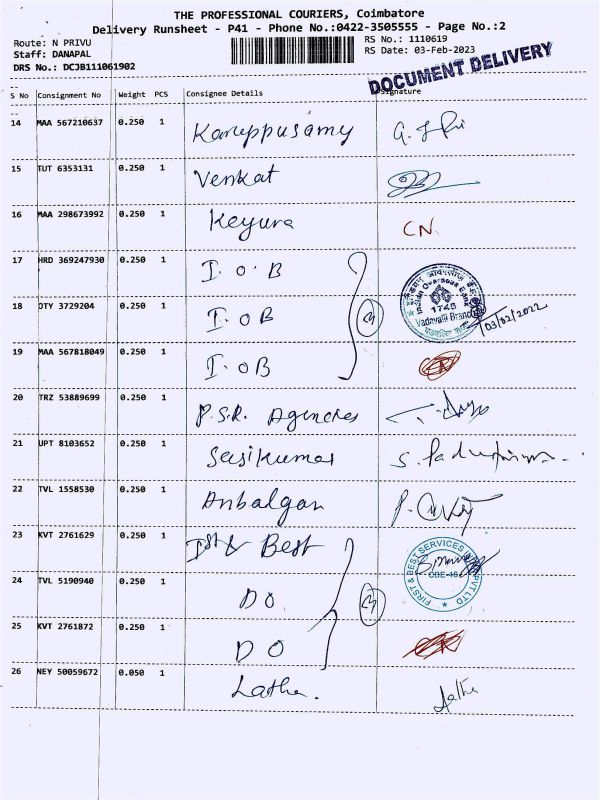 THE PROFESSIONAL COURIERS, Coimbatore
Delivery Runsheet - P41 - Phone No.:0422-3505555 - Page No.:2
Route: N PRIVU RS No.: 1110619
Staff: DANAPAL RS Date: 03-Feb-2023
DRS No.: DCJB111061902
DOCUMENT DELIVERY
S No Consignment No Weight PCS Consignee Details Signature
14 MAA 567210637 0.250 1 Karuppusamy
15 TUT 6353131 0.250 1 Venkat
16 MAA 298673992 0.250 1 Keyura CN.
17 HRD 369247930 0.250 1 I.O.B
Indian Overseas Bank
1745
Vadavalli Branch
18 DTY 3729204 0.250 1 I.OB 3 03/02/2022
19 MAA 567818049 0.250 1 I.OB CN
20 TRZ 53889699 0.250 1 P.S.R. Agencies
21 UPT 8103652 0.250 1 Sasikumar
22 TVL 1558530 0.250 1 Anbalgan
23 KVT 2761629 0.250 1 Ist & Best
FIRST & BEST SERVICES PVT LTD
24 TVL 5190940 0.250 1 DO 3
25 KVT 2761872 0.250 1 DO CN
26 NEY 50059672 0.050 1 Latha. Latha